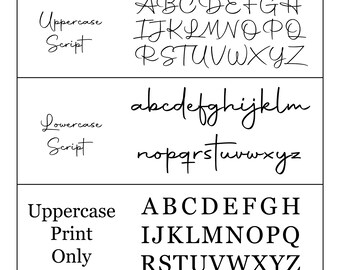 Uppercase
Script
ABCDEFGH
IJKLMNOPQ
RSTUVWXYZ
Lowercase
Script
abcdefghijklm
nopqrstuvwxyz
Uppercase
Print
Only
ABCDEFGH
IJKLMNOPQ
RSTUVWXYZ